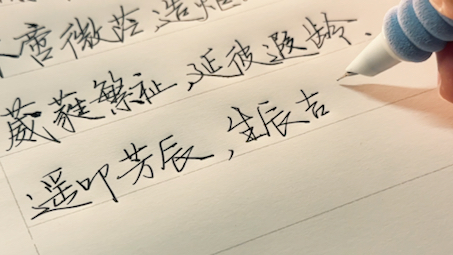 啻微芒,造炬
葳蕤繁祉,延彼遐龄.
遥叩芳辰,生辰吉